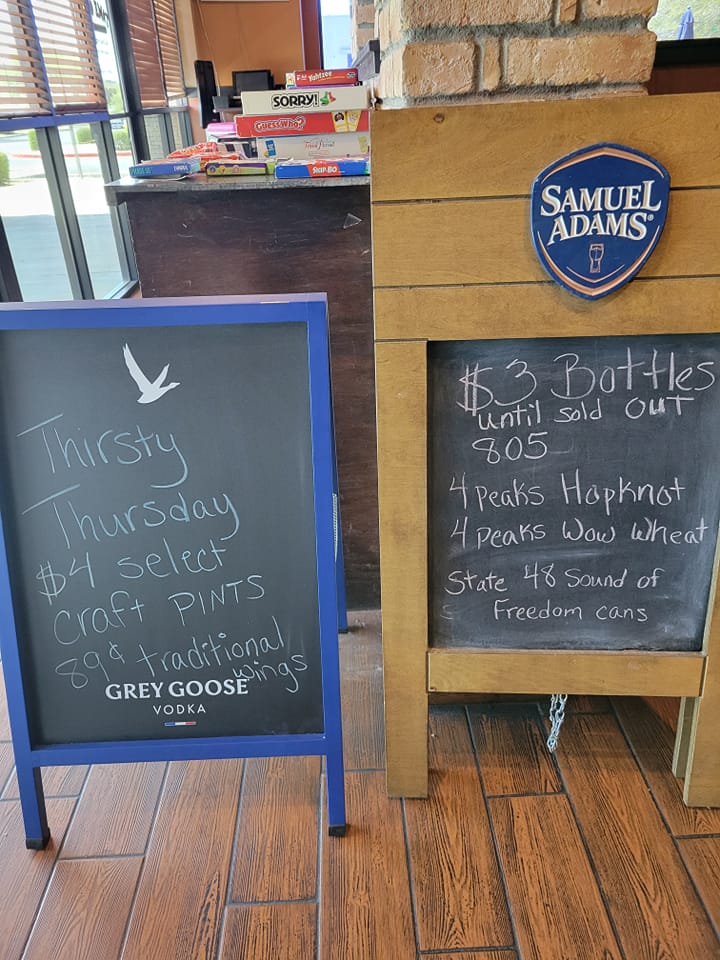 Yahtzee
SORRY!
GUESS WHO?
Trivial Pursuit
SKIP-BO
SAMUEL
ADAMS®
Thirsty
Thursday
$4 select
craft PINTS
89¢ traditional
wings
GREY GOOSE
VODKA
$3 Bottles
until sold OUT
805
4 peaks Hopknot
4 peaks Wow Wheat
State 48 Sound of
Freedom cans